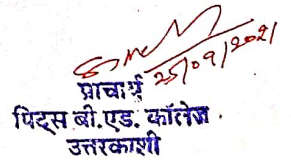 25/09/2021
प्राचार्य
पिट्स बी.एड. कॉलेज
उत्तरकाशी